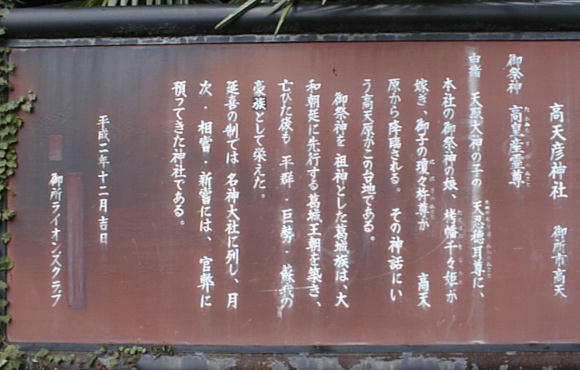 高天彦神社　御所市高天
御祭神　高皇産霊尊
由緒　天照大神の子の　天忍穂耳尊に、
本社の御祭神の娘、栲幡千々姫が
嫁ぎ、御子の瓊々杵尊が　高天
原から降臨される。その神話にい
う高天原がこの台地である。
御祭神を　祖神とした葛城族は、大
和朝廷に先行する葛城王朝を築き、
亡びた後も　平群・巨勢・蘇我の
豪族として栄えた。
延喜の制では　名神大社に列し、月
次・相嘗・新嘗には、官幣に
預ってきた神社である。
平成二年十二月吉日
御所ライオンズクラブ